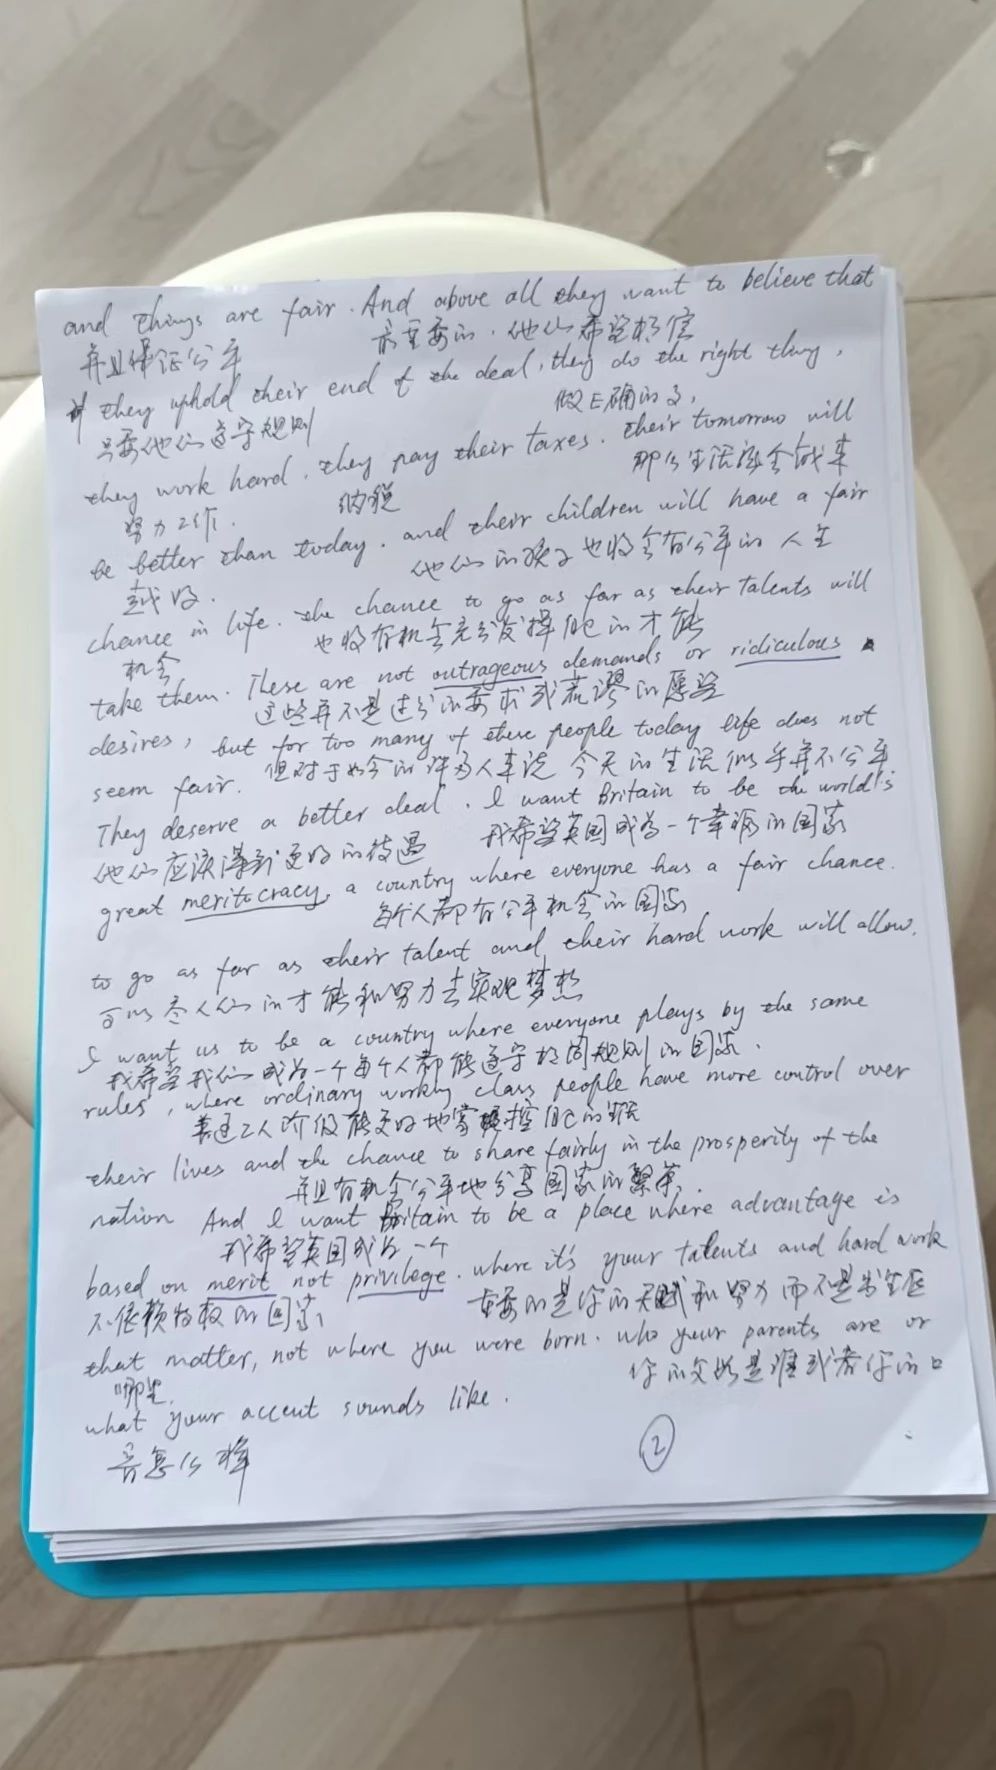 and things are fair. And above all they want to believe that
并且保证公平 最重要的，他们希望相信
if they uphold their end of the deal, they do the right thing,
只要他们遵守规则 做正确的事，
they work hard, they pay their taxes. their tomorrow will
努力工作. 纳税 那么生活就会越来
be better than today. and their children will have a fair
越好. 他们的孩子也将会有公平的人生
chance in life. the chance to go as far as their talents will
机会 也将有机会充分发挥自己的才能
take them. These are not outrageous demands or ridiculous
这些并不是过分的要求或荒谬的愿望
desires, but for too many of these people today life does not
seem fair. 但对于如今的许多人来说 今天的生活似乎并不公平
They deserve a better deal. I want Britain to be the world's
他们应该得到更好的待遇 我希望英国成为一个幸福的国家
great meritocracy, a country where everyone has a fair chance.
每个人都有公平机会的国家
to go as far as their talent and their hard work will allow.
可以尽人们的才能和努力去实现梦想
I want us to be a country where everyone plays by the same
我希望我们成为一个每个人都能遵守相同规则的国家.
rules, where ordinary working class people have more control over
普通工人阶级能更好地掌控自己的生活
their lives and the chance to share fairly in the prosperity of the
并且有机会公平地分享国家的繁荣.
nation And I want Britain to be a place where advantage is
我希望英国成为一个
based on merit not privilege. where it's your talents and hard work
不依赖特权的国家 重要的是你的天赋和努力而不是出生在
that matter, not where you were born. who your parents are or
哪里. 你的父母是谁或者你的口
what your accent sounds like.
音怎么样
2